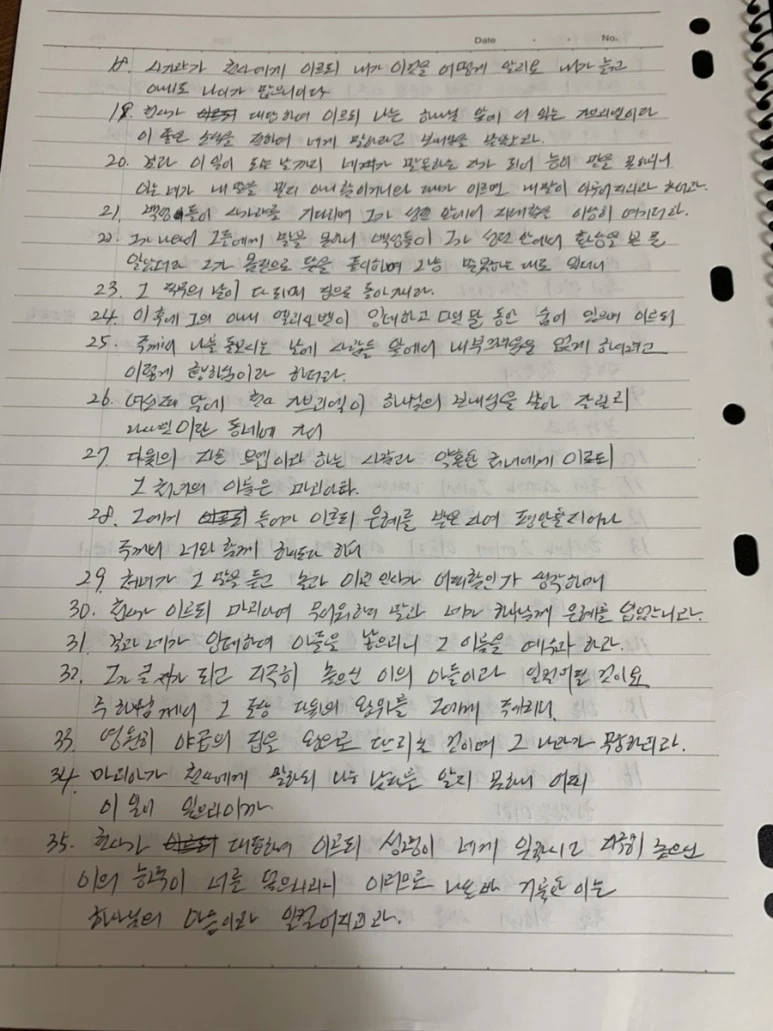 Date . . No.
18. 사가랴가 천사에게 이르되 내가 이것을 어떻게 알리요 내가 늙고
아내도 나이가 많으니이다
19. 천사가 대답하여 이르되 나는 하나님 앞에 서 있는 가브리엘이라
이 좋은 소식을 전하여 네게 말하라고 보내심을 받았노라.
20. 보라 이 일이 되는 날까지 네가 말 못하는 자가 되어 능히 말을 못하리니
이는 네가 내 말을 믿지 아니함이거니와 때가 이르면 내 말이 이루어지리라 하더라.
21. 백성들이 사가랴를 기다리며 그가 성전 안에서 지체함을 이상히 여기더라.
22. 그가 나와서 그들에게 말을 못하니 백성들이 그가 성전 안에서 환상을 본 줄
알았더라 그가 몸짓으로 뜻을 표시하며 그냥 말못하는 대로 있더니
23. 그 직무의 날이 다 되매 집으로 돌아가니라.
24. 이 후에 그의 아내 엘리사벳이 잉태하고 다섯 달 동안 숨어 있으며 이르되
25. 주께서 나를 돌보시는 날에 사람들 앞에서 내 부끄러움을 없게 하시려고
이렇게 행하심이라 하더라.
26. 여섯째 달에 천사 가브리엘이 하나님의 보내심을 받아 갈릴리
나사렛이란 동네에 가서
27. 다윗의 자손 요셉이라 하는 사람과 약혼한 처녀에게 이르되
그 처녀의 이름은 마리아라.
28. 그에게 들어가 이르되 은혜를 받은 자여 평안할지어다
주께서 너와 함께 하시도다 하니
29. 처녀가 그 말을 듣고 놀라 이런 인사가 어찌함인가 생각하매
30. 천사가 이르되 마리아여 무서워하지 말라 네가 하나님께 은혜를 입었느니라.
31. 보라 네가 잉태하여 아들을 낳으리니 그 이름을 예수라 하라.
32. 그가 큰 자가 되고 지극히 높으신 이의 아들이라 일컬어질 것이요
주 하나님께서 그 조상 다윗의 왕위를 그에게 주시리니
33. 영원히 야곱의 집을 왕으로 다스리실 것이며 그 나라가 무궁하리라.
34. 마리아가 천사에게 말하되 나는 남자를 알지 못하니 어찌
이 일이 있으리이까
35. 천사가 대답하여 이르되 성령이 네게 임하시고 지극히 높으신
이의 능력이 너를 덮으시리니 이러므로 나실 바 거룩한 이는
하나님의 아들이라 일컬어지리라.